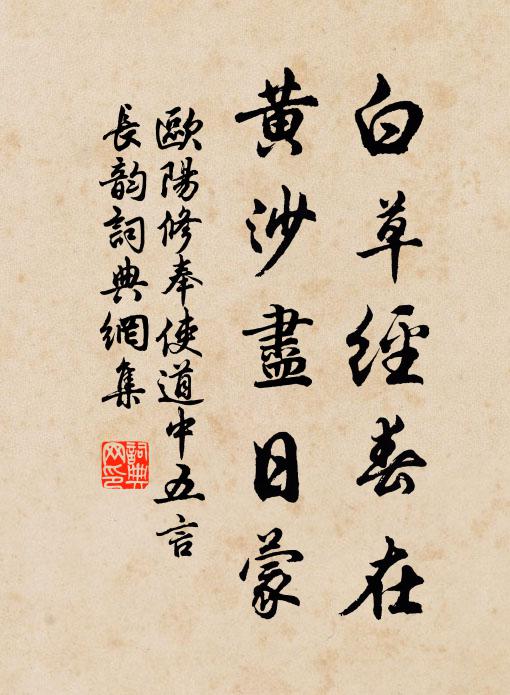 白草經春在
黃沙盡日蒙
歐陽修奉使道中五言
長韵詞典網集
詞典
网印